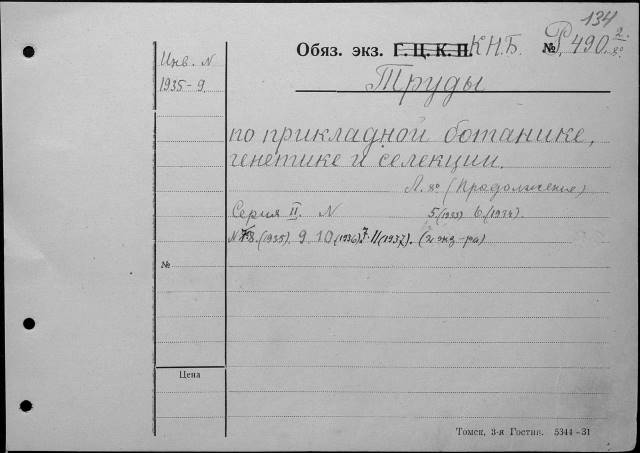 134
Обяз. экз. Г. Ц. К. П. К.Н.Б. № Р, 490 2/8°
Инв. N
1935-9.
Труды
по прикладной ботанике,
генетике и селекции.
Л. 8° (Продолжение)
Серия II. N 5(1933) 6(1934).
8.(1935), 9. 10(1936) 11(1937). (2 экз-ра)
№
Цена
Томск, 3-я Гостип. 5344-31